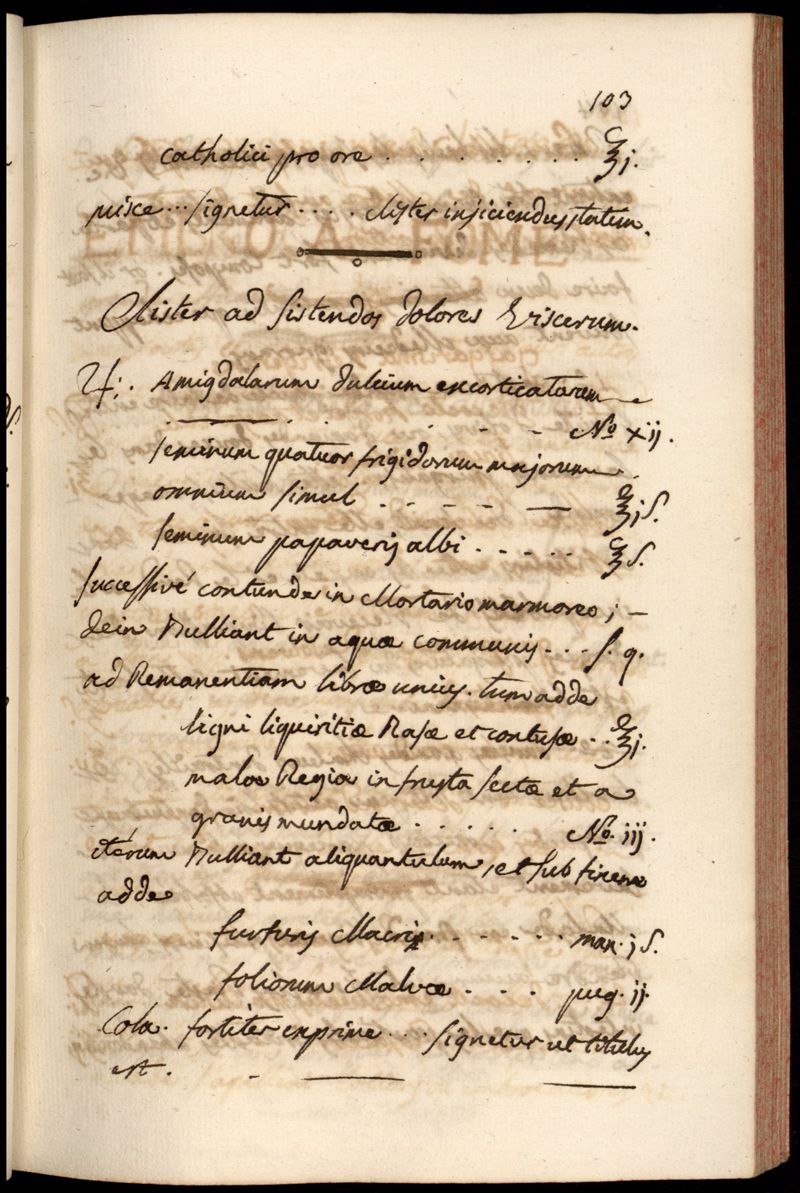 103
catholici pro ore . . . . . . . . ℥j.
misce ... signetur .... clister injiciendus statim.
Clister ad sistendos dolores viscerum.
♃. Amigdalarum dulcium excorticatarum
. . . . No xij.
seminum quatuor frigidorum majorum
omnium simul . - - - - — ℥js.
seminum papaveris albi . . . . . ℥s.
successivé contunde in Mortario marmoreo; —
dein bulliant in aquæ communis ... s. q.
ad Remanentiam libræ unius. tum adde
ligni liquiritiæ Rasæ et contusæ .. ℥j.
mala Regia in frusta secta et a
granis mundatæ . . . . . . No. iij.
iterum bulliant aliquantulum, et sub finem
adde
furfuris Macri . - - - . . . man. js.
foliorum Malvæ . . . . pug. ij.
Cola. fortiter exprime ... signetur ut titulus
est. -